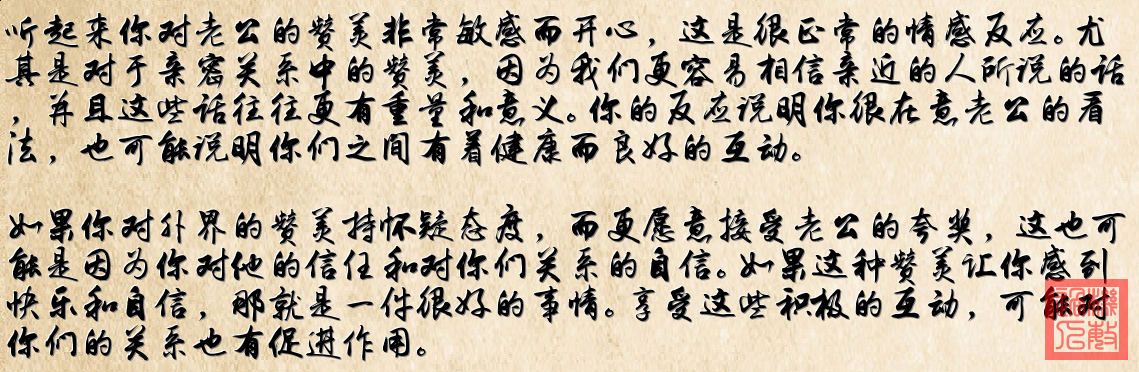 听起来你对老公的赞美非常敏感而开心，这是很正常的情感反应。尤
其是对于亲密关系中的赞美，因为我们更容易相信亲近的人所说的话
，并且这些话往往更有重量和意义。你的反应说明你很在意老公的看
法，也可能说明你们之间有着健康而良好的互动。
如果你对外界的赞美持怀疑态度，而更愿意接受老公的夸奖，这也可
能是因为你对他的信任和对你们关系的自信。如果这种赞美让你感到
快乐和自信，那就是一件很好的事情。享受这些积极的互动，可能对
你们的关系也有促进作用。